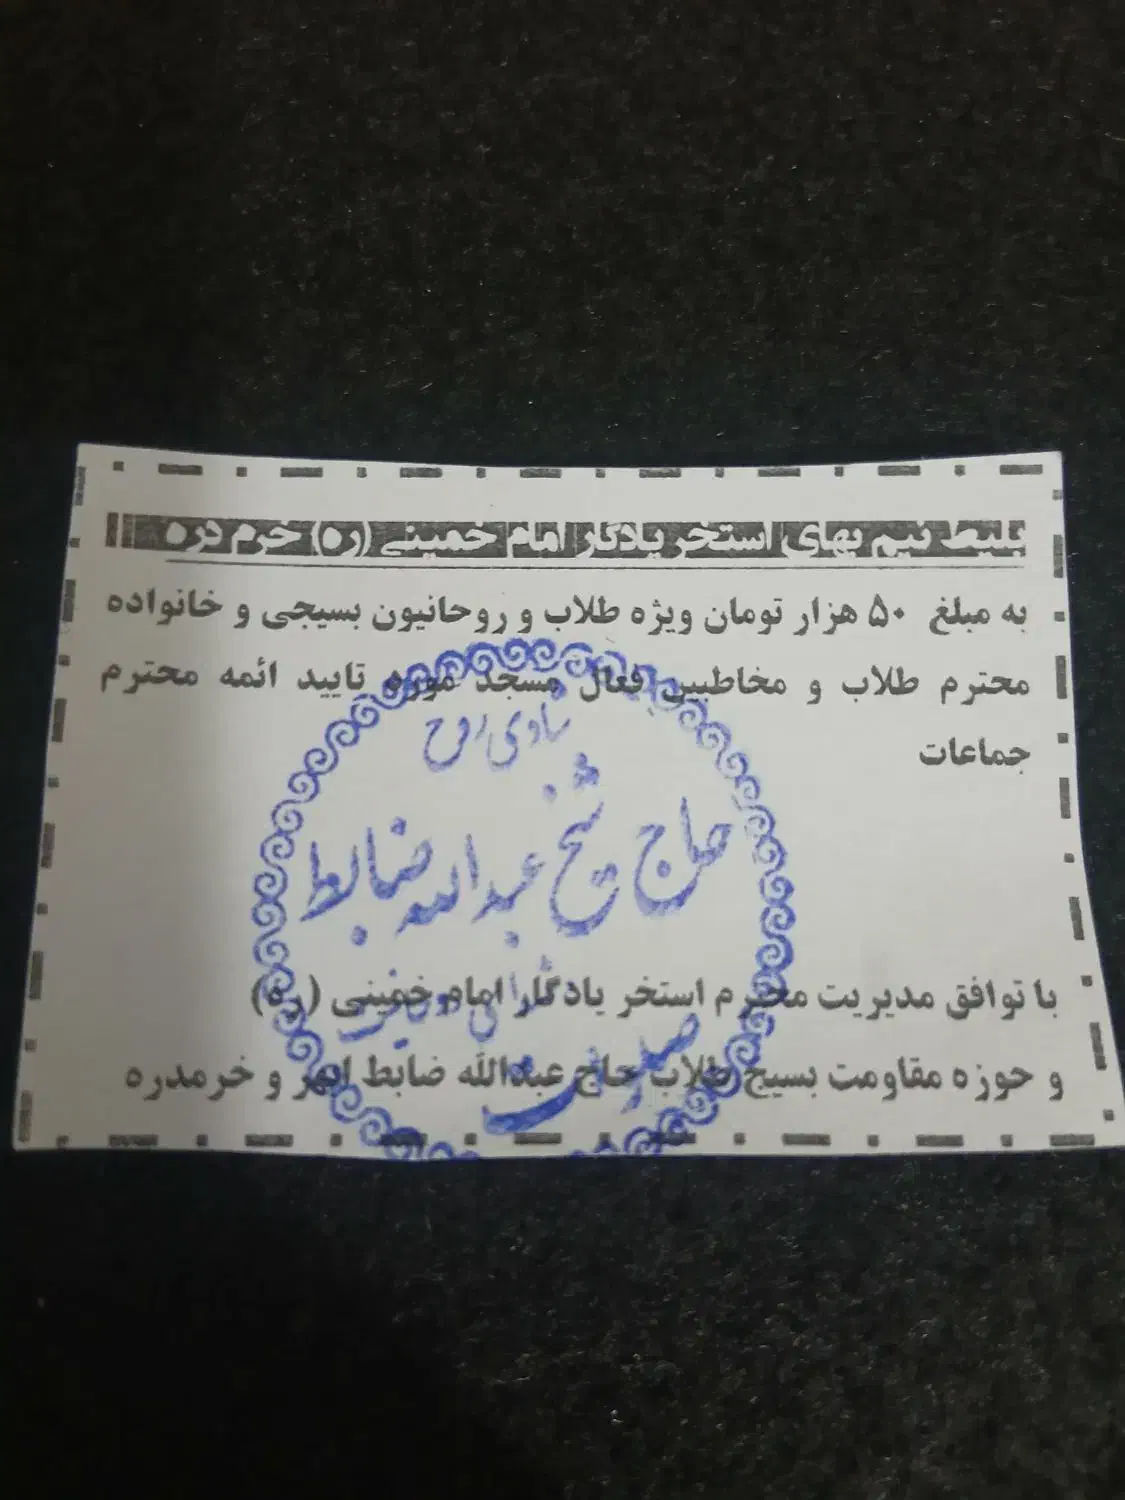 بلیط نیم بهای استخر یادگار امام خمینی (ره) خرم دره
به مبلغ ۵۰ هزار تومان ویژه طلاب و روحانیون بسیجی و خانواده
محترم طلاب و مخاطبین فعال مسجد موره تایید ائمه محترم
جماعات
شادی روح
حاج شیخ عبدالله ضابط
صلوات
با توافق مدیریت محترم استخر یادگار امام خمینی (ره)
و حوزه مقاومت بسیج طلاب حاج عبدالله ضابط ابهر و خرمدره